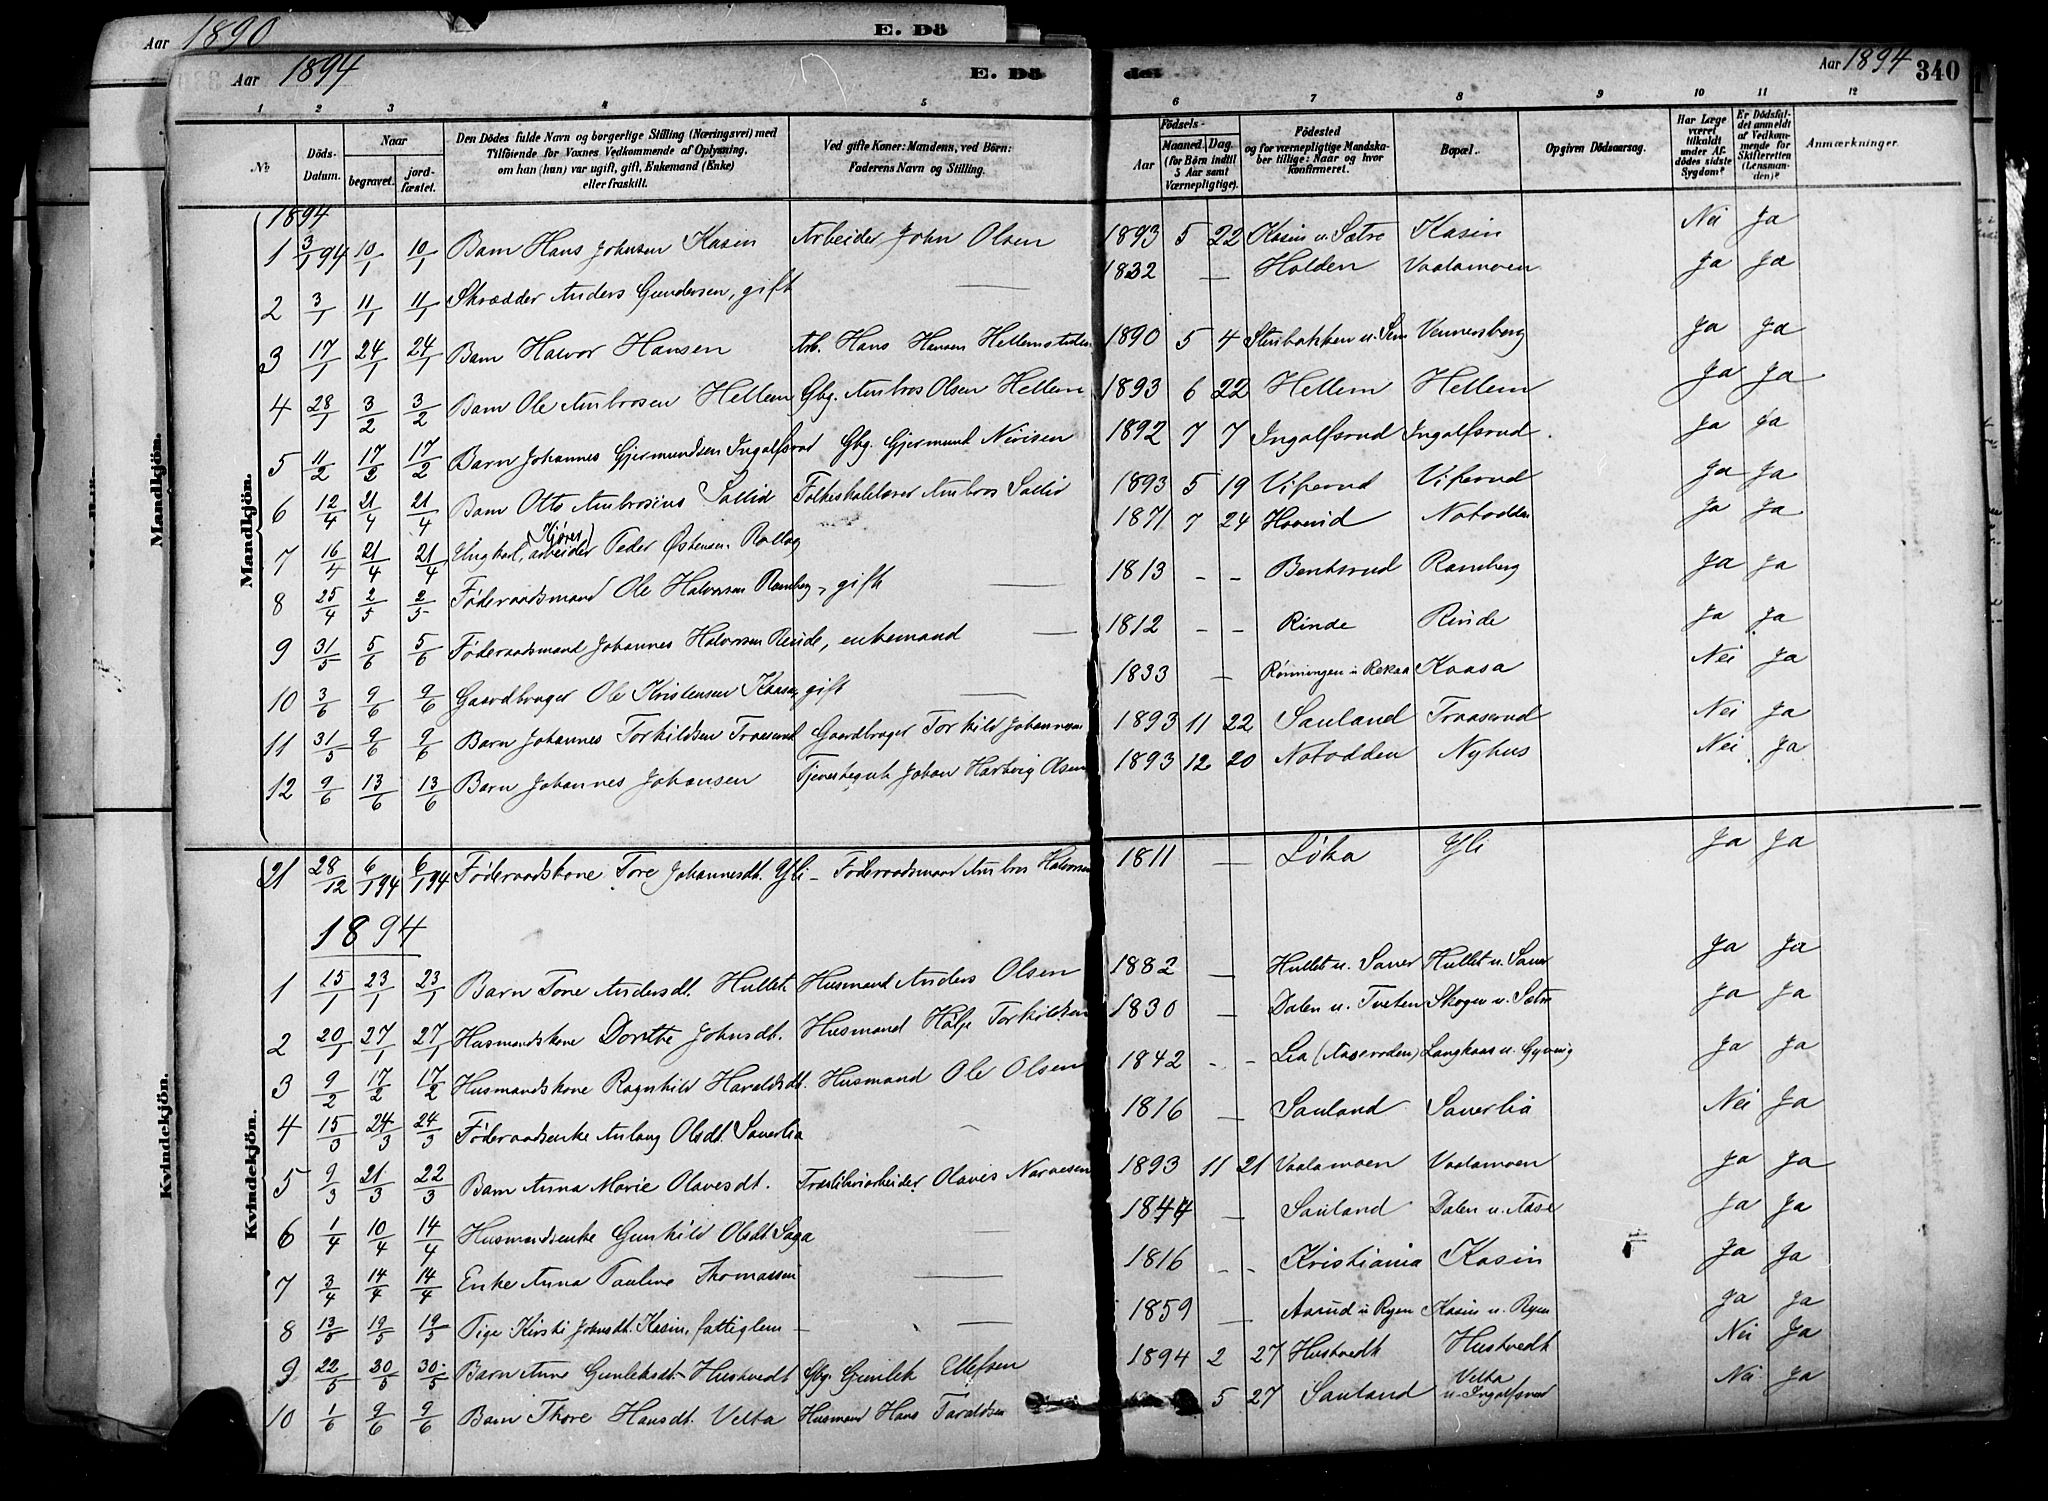 Aar 1890 E. Dö
Aar 1894 E. Dö det Aar 1894 340
1 2 3 4 5 6 7 8 9 10 11 12
№ Döds-Datum. Naar begravet. jordfæstet. Den Dödes fulde Navn og borgerlige Stilling (Næringsvei) med Tilföiende for Voxnes Vedkommende af Oplysning, om han (hun) var ugift, gift, Enkemand (Enke) eller fraskilt. Ved gifte Koner: Mandens, ved Börn: Faderens Navn og Stilling. Födsels- Aar Maaned. Dag. (for Börn indtil 5 Aar samt Værnepligtige). Födested og for værnepligtige Mandskaber tillige: Naar og hvor konfirmeret. Bopæl. Opgiven Dödsaarsag. Har Læge været tilkaldt under Afdödes sidste Sygdom? Er Dödsfaldet anmeldt af Vedkommende for Skifteretten (Lensmanden)? Anmærkninger.
Mandkjön.
1894
1 3/1 94 10/1 10/1 Barn Hans Johnsen Kasin Arbeider John Olsen 1893 5 22 Kasin u. Sætre Kasin Nei Ja
2 3/1 11/1 11/1 Skrædder Anders Gundersen, gift — 1832 — Holden Vaalamoen Ja Ja
3 17/1 24/1 24/1 Barn Halvor Hansen Arb. Hans Hansen 1890 5 4 Stenbakken u. Sem Vennersborg Ja Ja
4 28/1 3/2 3/2 Barn Ole Ambrosen Hellem Gbg. Ambros Olsen Hellem 1893 6 22 Hellem Hellem Ja Ja
5 11/2 17/2 17/2 Barn Johannes Gjermundsen Ingolfsrud Gbg. Gjermund Nirisen 1892 7 7 Ingolfsrud Ingolfsrud Ja Ja
6 12/4 21/4 21/4 Barn Otto Ambrosius Sollid Folkeskolelærer Ambros Sollid 1893 5 19 Viperud Viperud Ja Ja
7 16/4 21/4 21/4 Ungkarl, (Kjøre) arbeider Peder Østensen Rollag 1871 7 24 Hovrud Notodden Ja Ja
8 25/4 2/5 2/5 Føderaadsmand Ole Halvorsen Ramberg, gift — 1813 - - Bentsrud Ramberg Ja Ja
9 31/5 5/6 5/6 Føderaadsmand Johannes Halvorsen Rinde, enkemand — 1812 - - Rinde Rinde Ja Ja
10 3/6 9/6 9/6 Gaardbruger Ole Kristensen Kaasa, gift — 1833 — Rønningen u Rekaa Kaasa Nei Ja
11 31/5 9/6 9/6 Barn Johannes Torkildsen Traaserud Gaardbruger Torkild Johannesen 1893 11 22 Sauland Traaserud Nei Ja
12 9/6 13/6 13/6 Barn Johannes Johansen Johan Hartvig Olsen 1893 12 20 Notodden Nyhus Nei Ja
Kvindekjön.
21 28/12 6/1 94 6/1 94 Føderaadskone Tore Johannesdt. Yli – Føderaadsmand Ambros Halvorsen 1811 — Løka Yli Ja Ja
1894
1 15/1 23/1 23/1 Barn Tone Andersdt. Hullet Husmand Anders Olsen 1882 — Hullet u. Sauer Hullet u. Sauer Ja Ja
2 20/1 27/1 27/1 Husmandskone Dorthe Johnsdt. Husmand Hølje Torkildsen 1830 — Dalen u. Tveten Skogen u. Sætre Ja Ja
3 9/2 17/2 17/2 Husmandskone Ragnhild Haraldsdt. Husmand Ole Olsen 1842 - - Lia (Aaserøden) Langkaas u. Gyvring Ja Ja
4 15/3 24/3 24/3 Føderaadsenke Aslaug Olsdt. Sauerlia 1816 — Sauland Sauerlia Nei Ja
5 9/3 21/3 22/3 Barn Anna Marie Olavesdt. Træsliberiarbeider Olaves Narvesen 1893 11 21 Vaalamoen Vaalamoen Ja Ja
6 1/4 10/4 14/4 Husmandsenke Gunhild Olsdt. Saga — 1844 — Sauland Dalen u. Aase Ja Ja
7 3/4 14/4 14/4 Enke Anna Pauline Thomassen — 1816 - - Kristiania Kasin Ja Ja
8 13/5 19/5 19/5 Pige Kirsti Johnsdt. Kasin, fattiglem — 1859 — Aarud u Ryen Kasin u. Ryen Ja Ja
9 22/5 30/5 30/5 Barn Anne Gunleksdt. Hustvedt Gbg. Gunlek Ellefsen 1894 2 27 Hustvedt Hustvedt Nei Ja
10 1/6 9/6 9/6 Barn Thore Hansdt. Velta Husmand Hans Taraldsen 5 27 Sauland Velta u. Ingolfsrud Nei Ja